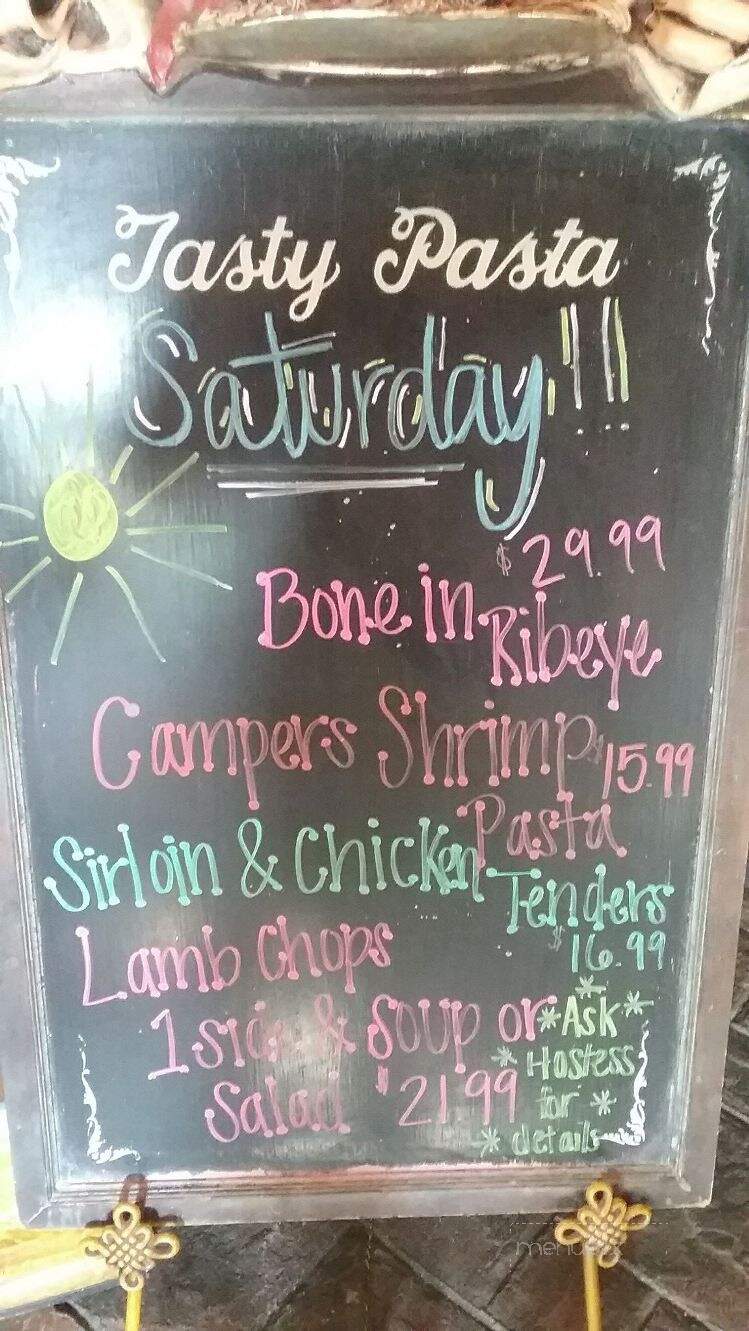 Tasty Pasta
Saturday!!!
$29.99
Bone in Ribeye
Campers Shrimp $15.99
Pasta
Sirloin & Chicken Tenders
$16.99
Lamb Chops
1 side & Soup or
Salad $21.99
*Ask*
*Hostess
for *
* details